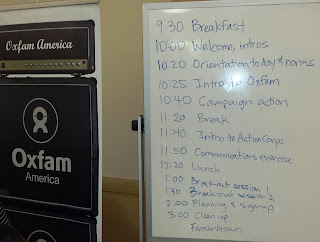 Oxfam America
Oxfam
America
9:30 Breakfast
10:00 Welcome, intros
10:20 Orientation to day & norms
10:25 Intro to Oxfam
10:40 Campaign action
11:20 Break
11:40 Intro to Action Corps
11:50 Communications exercise
12:20 Lunch
1:00 Breakout session 1
1:30 Breakout session 2
2:00 Planning & sign-up
3:00 Clean up